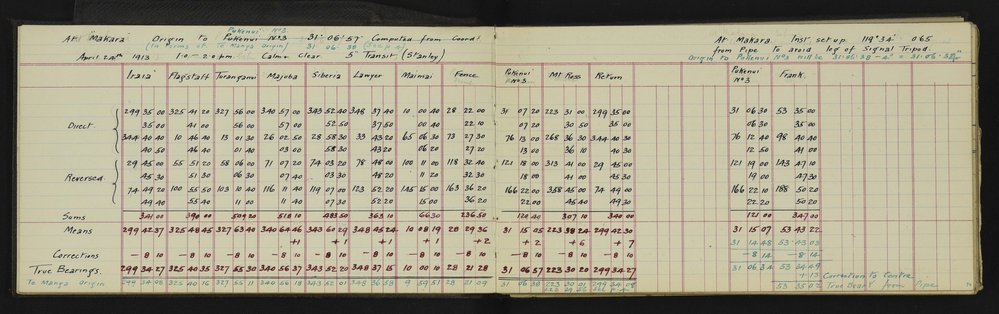 At "Makara" Origin to Pukenui Nº3 31·06'·57" Computed from Coord!
Pukenui Nº3
(In terms of To Manga Origin) 31 06 38
April 24th 1913 1·0 - 2·0 p.m. Calm Clear 5" Transit (Stanley)
At Makara. Inst. set up 119°34' 0·65
from Pipe to avoid leg of Signal Tripod.
Origin to Pukenui Nº3 will be 31·05'·38
Flagstaff Turanganui Majuba Siberia Lawyer Maimai Fence Pukenui Nº3 Mt Ross Return Pukenui Nº3 Frank
299 35 00 325 41 20 327 56 00 340 57 00 343 52 40 348 37 40 10 00 40 28 22 00 31 07 20 223 31 00 299 35 00 31 06 30 53 35 00
Direct 35 00 41 00 56 00 57 00 52 50 37 50 00 40 22 10 07 20 30 50 35 00 06 30 35 00
344 40 40 10 46 40 13 01 30 26 02 50 28 58 30 33 43 20 65 06 30 73 27 30 76 13 00 268 36 30 344 40 30 76 12 40 98 40 40
40 50 46 40 01 40 03 00 58 30 43 20 06 20 27 20 13 00 36 10 40 30 12 50 41 00
29 45 00 55 51 20 58 06 00 71 07 20 74 03 20 78 48 00 100 11 00 118 32 40 121 18 00 313 41 00 29 45 00 121 19 00 143 47 10
Reversed 45 30 51 30 06 30 07 40 03 30 48 20 11 20 32 30 18 00 41 00 45 30 19 00 47 30
74 49 20 100 55 50 103 10 40 116 11 40 119 07 00 123 52 20 145 15 00 163 36 20 166 22 00 358 45 00 74 49 00 166 22 10 188 50 20
49 40 55 40 11 00 11 40 07 30 52 20 15 00 36 20 22 00 45 40 49 30 22 20 50 20
Sums 341 00 390 00 509 20 518 10 483 50 363 10 66 30 236 50 120 40 307 10 340 00 121 00 347 00
Means 299 42 37 325 48 45 327 63 40 340 64 46 343 60 29 348 45 24 10 08 19 28 29 36 31 15 05 223 38 24 299 42 30 31 15 07 53 43 22
+1 +1 +1 +1 +2 +2 +6 +7 31 14 48 53 43 03
Corrections -8 10 -8 10 -8 10 -8 10 -8 10 -8 10 -8 10 -8 10 -8 10 -8 10 -8 10 -8 14 -8 14
True Bearings. 299 34 27 325 40 35 327 55 30 340 56 37 343 52 20 348 37 15 10 00 10 28 21 28 31 06 57 223 30 20 299 34 27 31 06 34 53 34 49
+13 Correction to Centre
To Manga Origin 299 34 08 325 40 16 327 55 11 340 56 18 343 52 01 348 36 58 9 59 51 28 21 09 31 06 38 223 30 01 299 34 08 53 35 02 True Bear! from Pipe